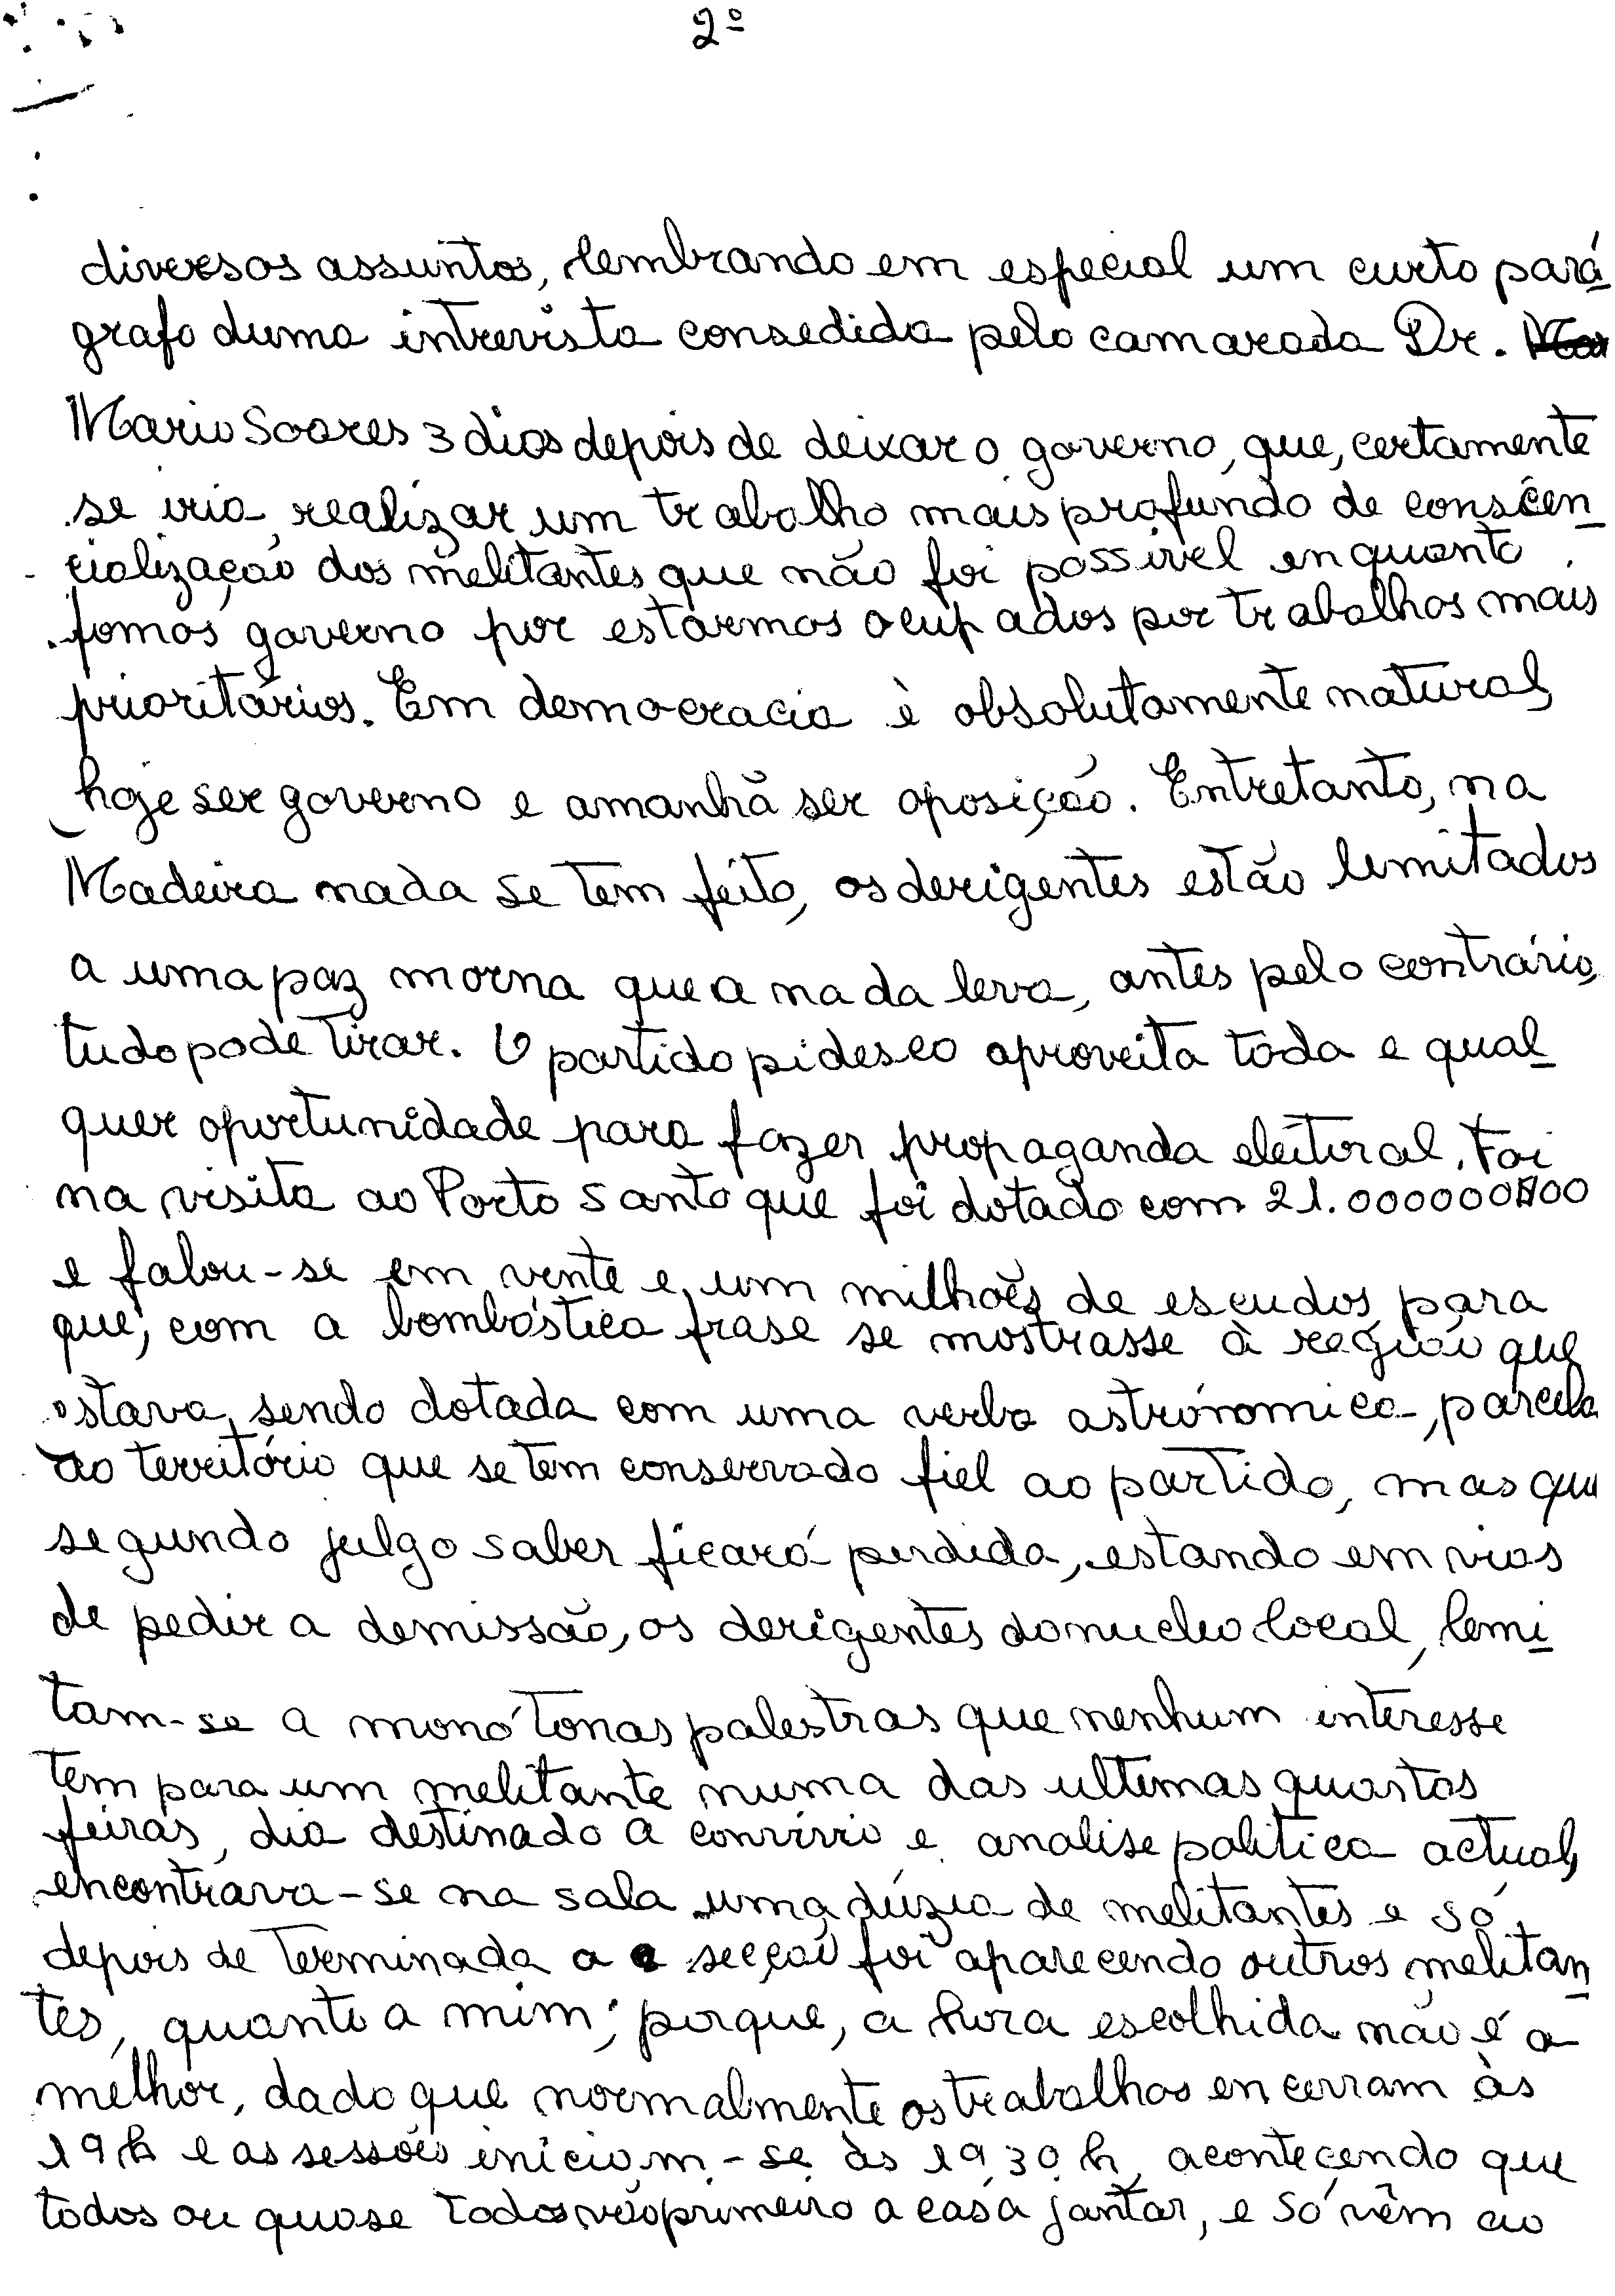 2º
diversos assuntos, lembrando em especial um curto pará
grafo duma intrevista consedida pelo camarada Dr. Mar
Mario Soares 3 dias depois de deixar o governo, que, certamente
se iria realizar um trabalho mais profundo de conscên_
cialização dos melitantes que não foi possivel enquanto
fomos governo por estarmos ocupados por trabalhos mais
prioritários. Em democracia è absolutamente natural,
hoje ser governo e amanhã ser oposição. Entretanto, na
Madeira nada se tem feito, os derigentes estão limitados
a uma paz morna que a nada leva, antes pelo contrário,
tudo pode tirar. O partido pidesco aproveita toda e qual_
quer oportunidade para fazer propaganda eleitoral. Foi
na visita ao Porto Santo que foi dotado com 21.000000$00
e falou-se em vente e um milhões de escudos, para
que, com a bombóstica frase se mostrasse à região que
estava, sendo dotada com uma verba astrónomica, parcela
do território que se tem conservado fiel ao partido, mas que
segundo julgo saber ficará perdida, estando em vias
de pedir a demissão, os derigentes do nucleo local, lemi_
tam-se a monótonas palestras que nenhum interesse
tem para um melitante numa das ultimas quartas
feiras, dia destinado a convivio e analise politica actual,
encontrava-se na sala uma dúzia de melitantes e só
depois de terminada a secção foi aparecendo outros melitan_
tes, quanto a mim; porque, a hora escolhida não é a
melhor, dado que normalmente os trabalhos encerram às
19 h e as sessões iniciam-se às 19,30 h, acontecendo que
todos ou quase todos vão primeiro a casa jantar, e só vêm ao